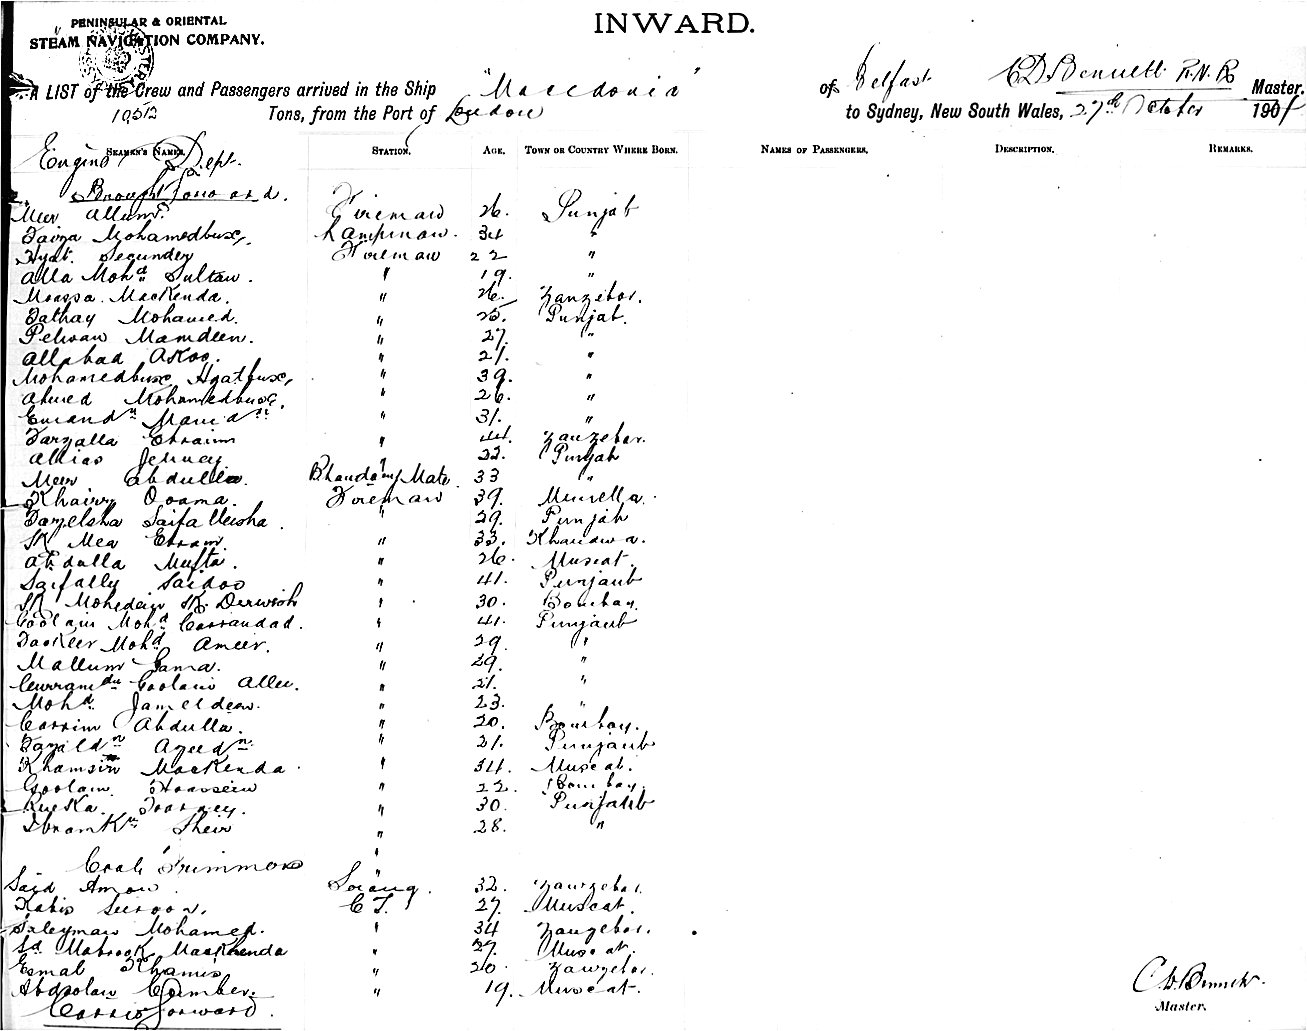 PENINSULAR & ORIENTAL
STEAM NAVIGATION COMPANY.
INWARD.
A LIST of the Crew and Passengers arrived in the Ship "Macedonia" of Belfast C D Bennett R.N.R. Master.
10512 Tons, from the Port of London to Sydney, New South Wales, 27th October 1904
SEAMEN'S NAMES. STATION. AGE. TOWN OR COUNTRY WHERE BORN. NAMES OF PASSENGERS. DESCRIPTION. REMARKS.
Engine Dept.
Brought forward.
Meer Allum Fireman 26. Punjab
Mohamedbux Lampman. 34 "
Hyat Secunder Fireman 22 "
Alla Mohd Sultan. " 19. "
Moassa Mackenda. " 26. Zanzebar.
Fathay Mohamed. " 25. Punjab.
Pelwan Mamdeen. " 27. "
Allahad " 21. "
Mohamedbux Hyatbux, " 39. "
Ahmed Mohamedbux. " 26. "
" 31. "
Farzalla Ebraim " 44. Zanzebar.
Allias " 22. Punjab
Meer Abdulla. Bhandary Mate 33 "
Khairy Fireman 39.
" 29. Punjab
SK Mea " 33. Khandwa.
Abdulla Mufta. " 26. Muscat.
Saifally Saidoo " 41. Punjaub
SK Mohedein SK Derwish " 30. Bombay.
Goolam Mohd " 41. Punjaub
Mohd Ameer. " 29. "
Mallum " 29. "
Goolam Allee. " 21. "
Mohd Jameldean. " 23. "
Cassim Abdulla. " 20. Bombay.
" 21. Punjaub
Khamsin Mackenda. " 34. Muscat.
Goolam Hoossein " 22. Bombay.
" 30. Punjaub
Sheir " 28. "
Coal Trimmers "
Said Serang. 32. Zanzebar.
C T. 27. Muscat.
Suleyman Mohamed. " 34 Zanzebar.
Sd Mabrook Mackenda " 27. Muscat.
Esmal Khamis " 20. Zanzebar.
Comber. " 19. Muscat.
Carried forward.
C D Bennett.
Master.